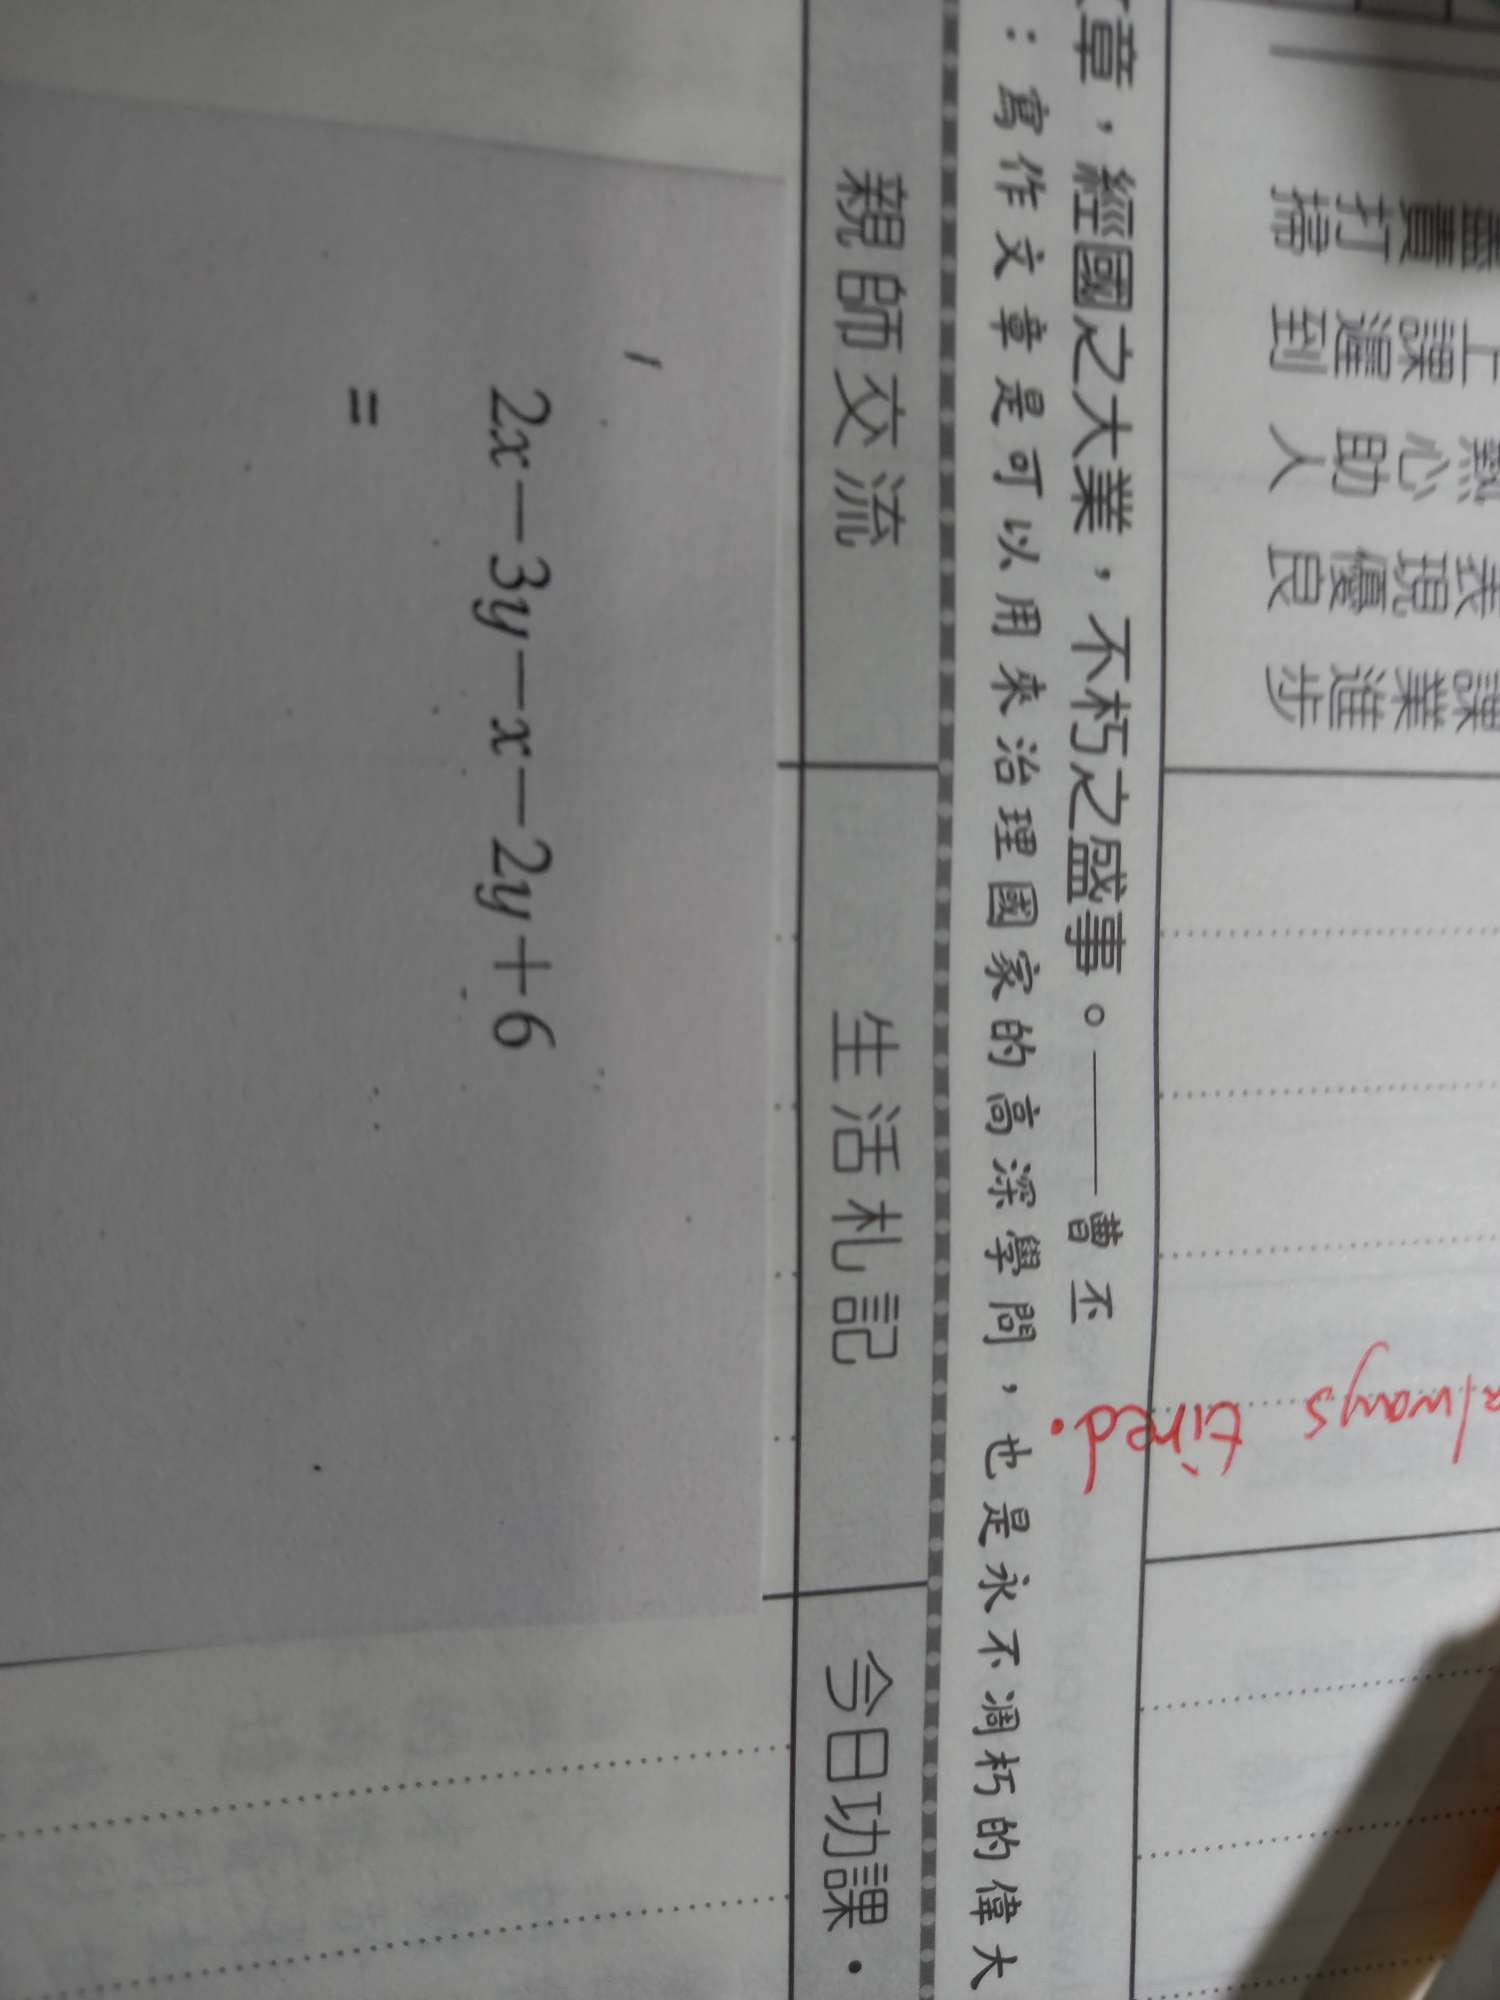 盡責打掃
上課遲到
熱心助人
表現優良
課業進步
always tired.
章，經國之大業，不朽之盛事。——曹丕
：寫作文章是可以用來治理國家的高深學問，也是永不凋朽的偉大
親師交流
生活札記
今日功課·
2x－3y－x－2y＋6
=